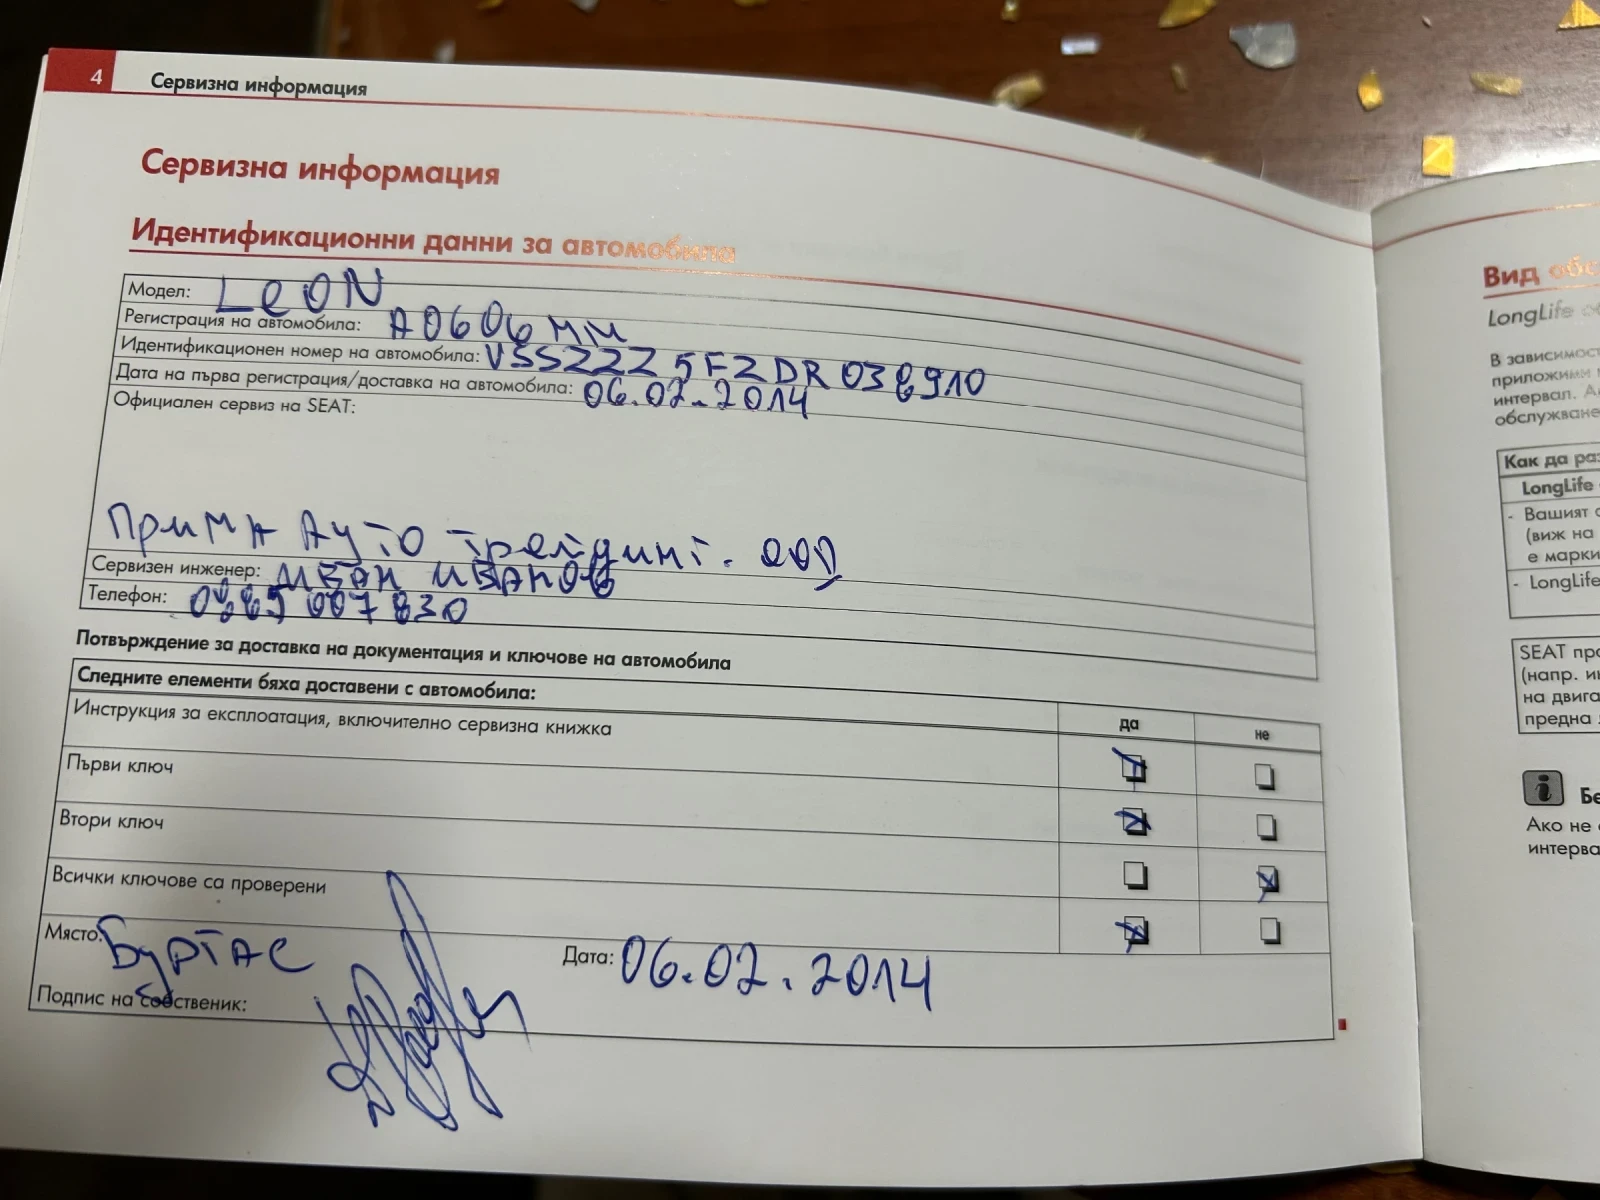 4 Сервизна информация
Сервизна информация
Идентификационни данни за автомобила
Модел: LeON
Регистрация на автомобила: А0606 ММ
Идентификационен номер на автомобила: VSSZZZ 5FZDR 038910
Дата на първа регистрация/доставка на автомобила: 06.02.2014
Официален сервиз на SEAT:
Прима Ауто трейдинг. ООД
Сервизен инженер: Иван Иванов
Телефон: 0885 007 830
Потвърждение за доставка на документация и ключове на автомобила
Следните елементи бяха доставени с автомобила:
да не
Инструкция за експлоатация, включително сервизна книжка
Първи ключ
Втори ключ
Всички ключове са проверени
Място: Бургас Дата: 06.02.2014
Подпис на собственик:
Вид
LongLife
В
приложими
интервал.
обслужване
Как да
LongLife
- Вашият
(виж на
е
- LongLife
SEAT
(напр.
на
предна
Ако не